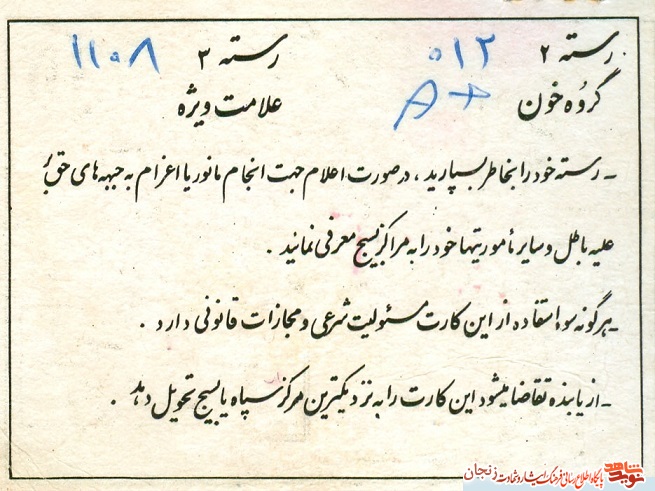 رسته ۲ ۰۱۲ رسته ۳ ۱۱۰۸
گروه خون A+ علامت ویژه
- رسته خود را بخاطر بسپارید ، در صورت اعلام جهت انجام مانور یا اعزام به جبهه های حق
علیه باطل و سایر مأموریتها خود را به مراکز بسیج معرفی نمائید .
- هرگونه سوء استفاده از این کارت مسئولیت شرعی و مجازات قانونی دارد .
- از یابنده تقاضا میشود این کارت را به نزدیکترین مرکز سپاه یا بسیج تحویل دهد .
نوید شاهد پایگاه اطلاع رسانی فرهنگ ایثار و شهادت زنجان